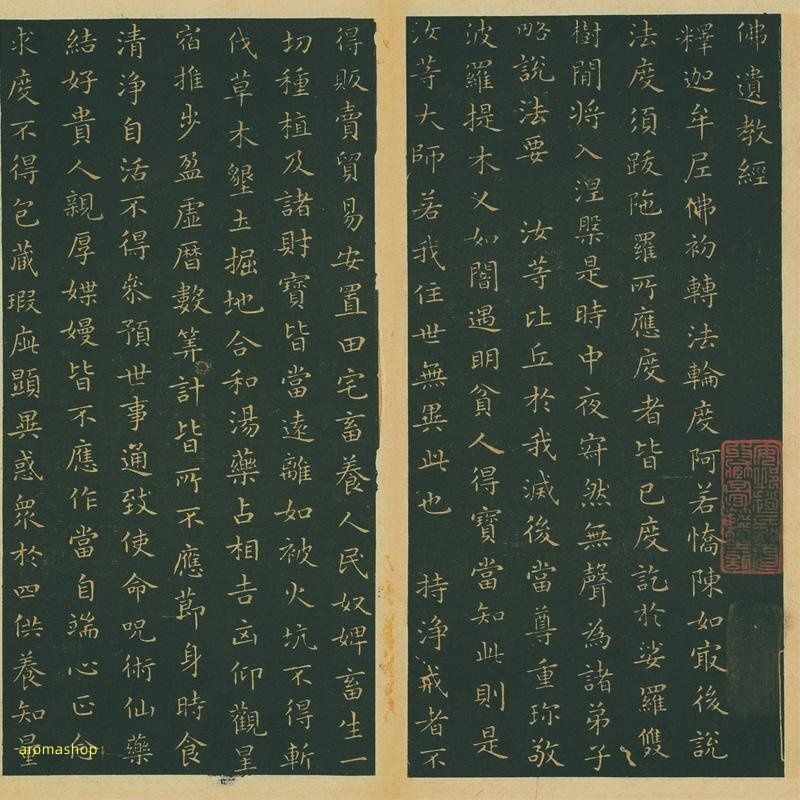 佛遺教經
釋迦牟尼佛初轉法輪度阿若憍陳如㝡後說
法度須跋陁羅所應度者皆已度訖於娑羅雙
樹間將入涅槃是時中夜寂然無聲為諸弟子
略說法要 汝等比丘於我滅後當尊重珎敬
波羅提木叉如闇遇明貧人得寶當知此則是
汝等大師若我住世無異此也 持淨戒者不
得販賣貿易安置田宅畜養人民奴婢畜生一
切種植及諸財寶皆當遠離如被火坑不得斬
伐草木墾土掘地合和湯藥占相吉凶仰觀星
宿推步盈虛曆數筭計皆所不應莭身時食
清淨自活不得叅預世事通致使命呪術仙藥
結好貴人親厚媟嫚皆不應作當自端心正念
求度不得包藏瑕疵顯異惑衆於四供養知量
aromashop